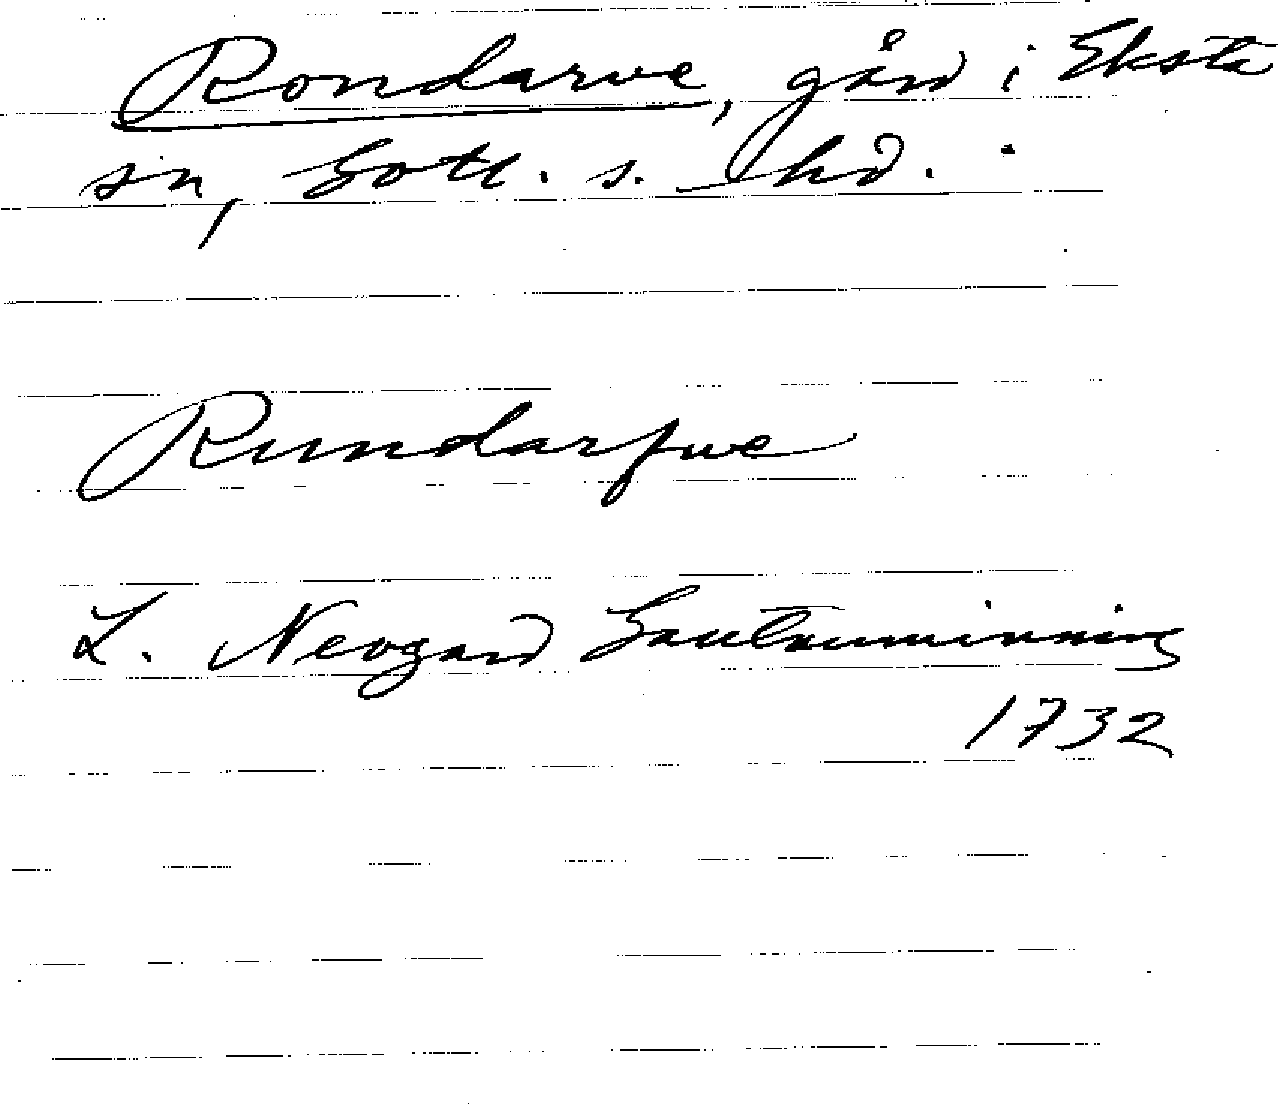 Rondarve, gård i Eksta
sn, Gotl. s. hd.
Rundarfwe
L. Neogard Gautauminning
1732